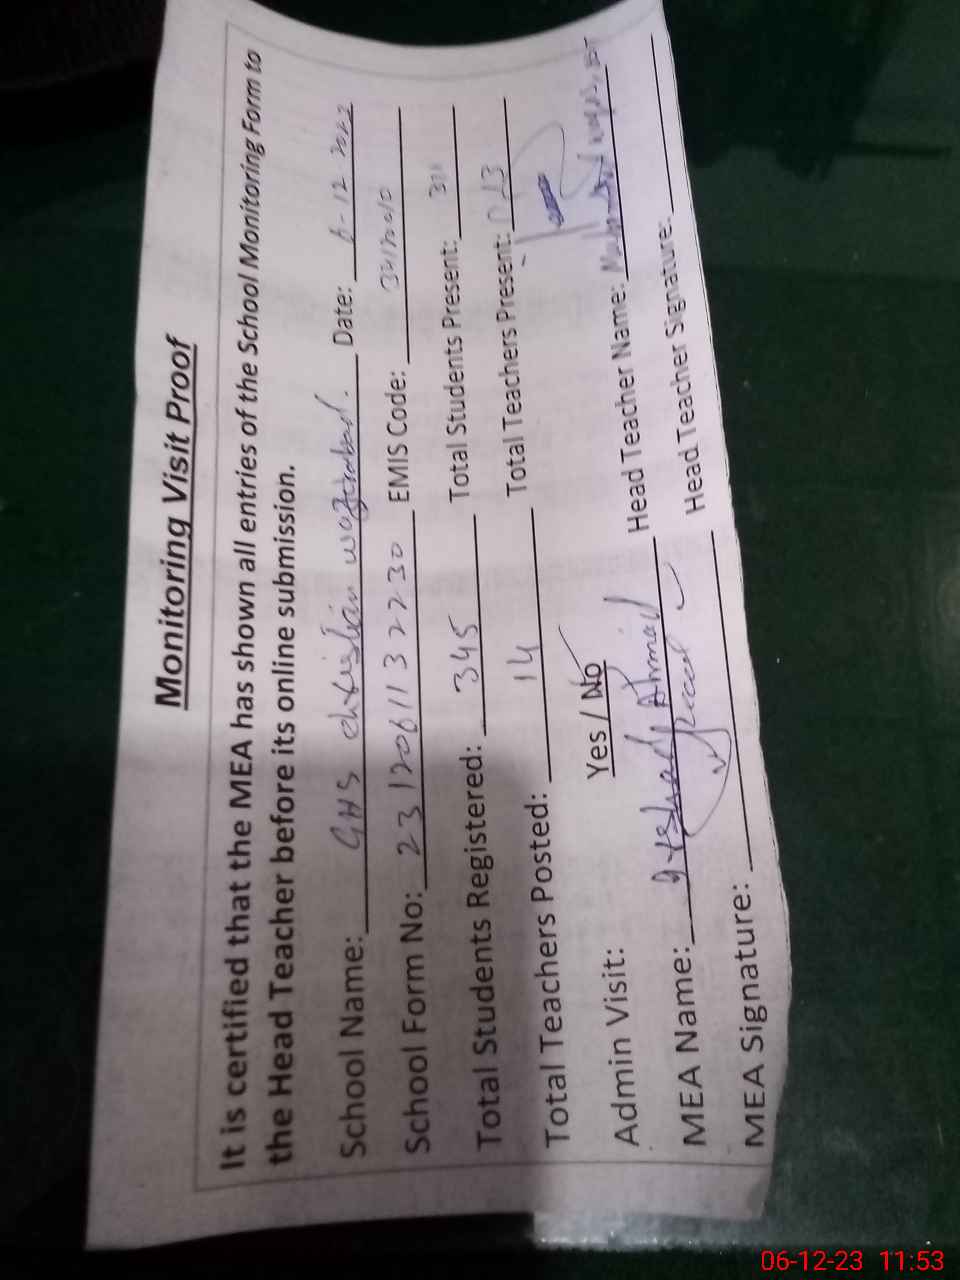 Monitoring Visit Proof
It is certified that the MEA has shown all entries of the School Monitoring Form to
the Head Teacher before its online submission.
School Name: GHS christian wazirabad. Date: 6-12-2023
School Form No: 2312061132230 EMIS Code: 34120010
Total Students Registered: 345 Total Students Present: 311
Total Teachers Posted: 14 Total Teachers Present: 13
Admin Visit: Yes / No
MEA Name: Irshad Ahmad Head Teacher Name:
MEA Signature: Head Teacher Signature:
06-12-23 11:53